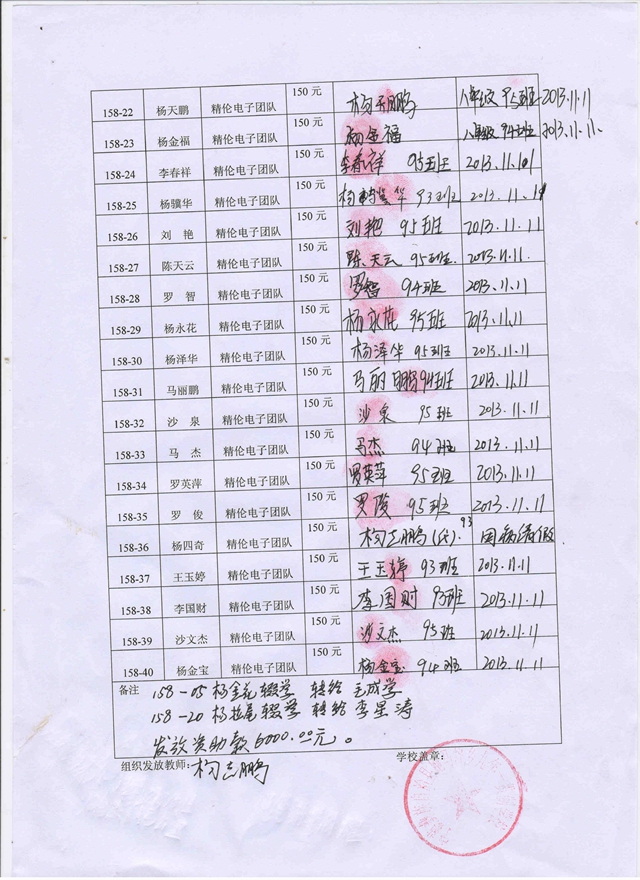 158-22 杨天鹏 精伦电子团队 150 元 杨天鹏 八年级 95班 2013.11.11
158-23 杨金福 精伦电子团队 150 元 杨金福 八年级 94班 2013.11.11.
158-24 李春祥 精伦电子团队 150 元 李春祥 95班 2013.11.11
158-25 杨骥华 精伦电子团队 150 元 杨骥华 93班 2013.11.11
158-26 刘 艳 精伦电子团队 150 元 刘艳 95班 2013.11.11
158-27 陈天云 精伦电子团队 150 元 陈天云 95班. 2013.11.11
158-28 罗 智 精伦电子团队 150 元 罗智 94班 2013.11.11
158-29 杨永花 精伦电子团队 150 元 杨永花 95班 2013.11.11
158-30 杨泽华 精伦电子团队 150 元 杨泽华 95班 2013.11.11
158-31 马丽鹏 精伦电子团队 150 元 马丽鹏 94班 2013.11.11
158-32 沙 泉 精伦电子团队 150 元 沙泉 95班 2013.11.11
158-33 马 杰 精伦电子团队 150 元 马杰 94班 2013.11.11
158-34 罗英萍 精伦电子团队 150 元 罗英萍 95班 2013.11.11
158-35 罗 俊 精伦电子团队 150 元 罗俊 95班 2013.11.11
158-36 杨四奇 精伦电子团队 150 元 杨志鹏(代). 93 因病请假
158-37 王玉婷 精伦电子团队 150 元 王玉婷 93班 2013.11.11
158-38 李国财 精伦电子团队 150 元 李国财 93班 2013.11.11
158-39 沙文杰 精伦电子团队 150 元 沙文杰 95班 2013.11.11
158-40 杨金宝 精伦电子团队 150 元 杨金宝 94班 2013.11.11
备注 158-05 杨金花 辍学 转给 王成学
158-20 杨拉尾 辍学 转给 李星涛
发放资助款6000.00元。
组织发放教师: 杨志鹏 学校盖章: